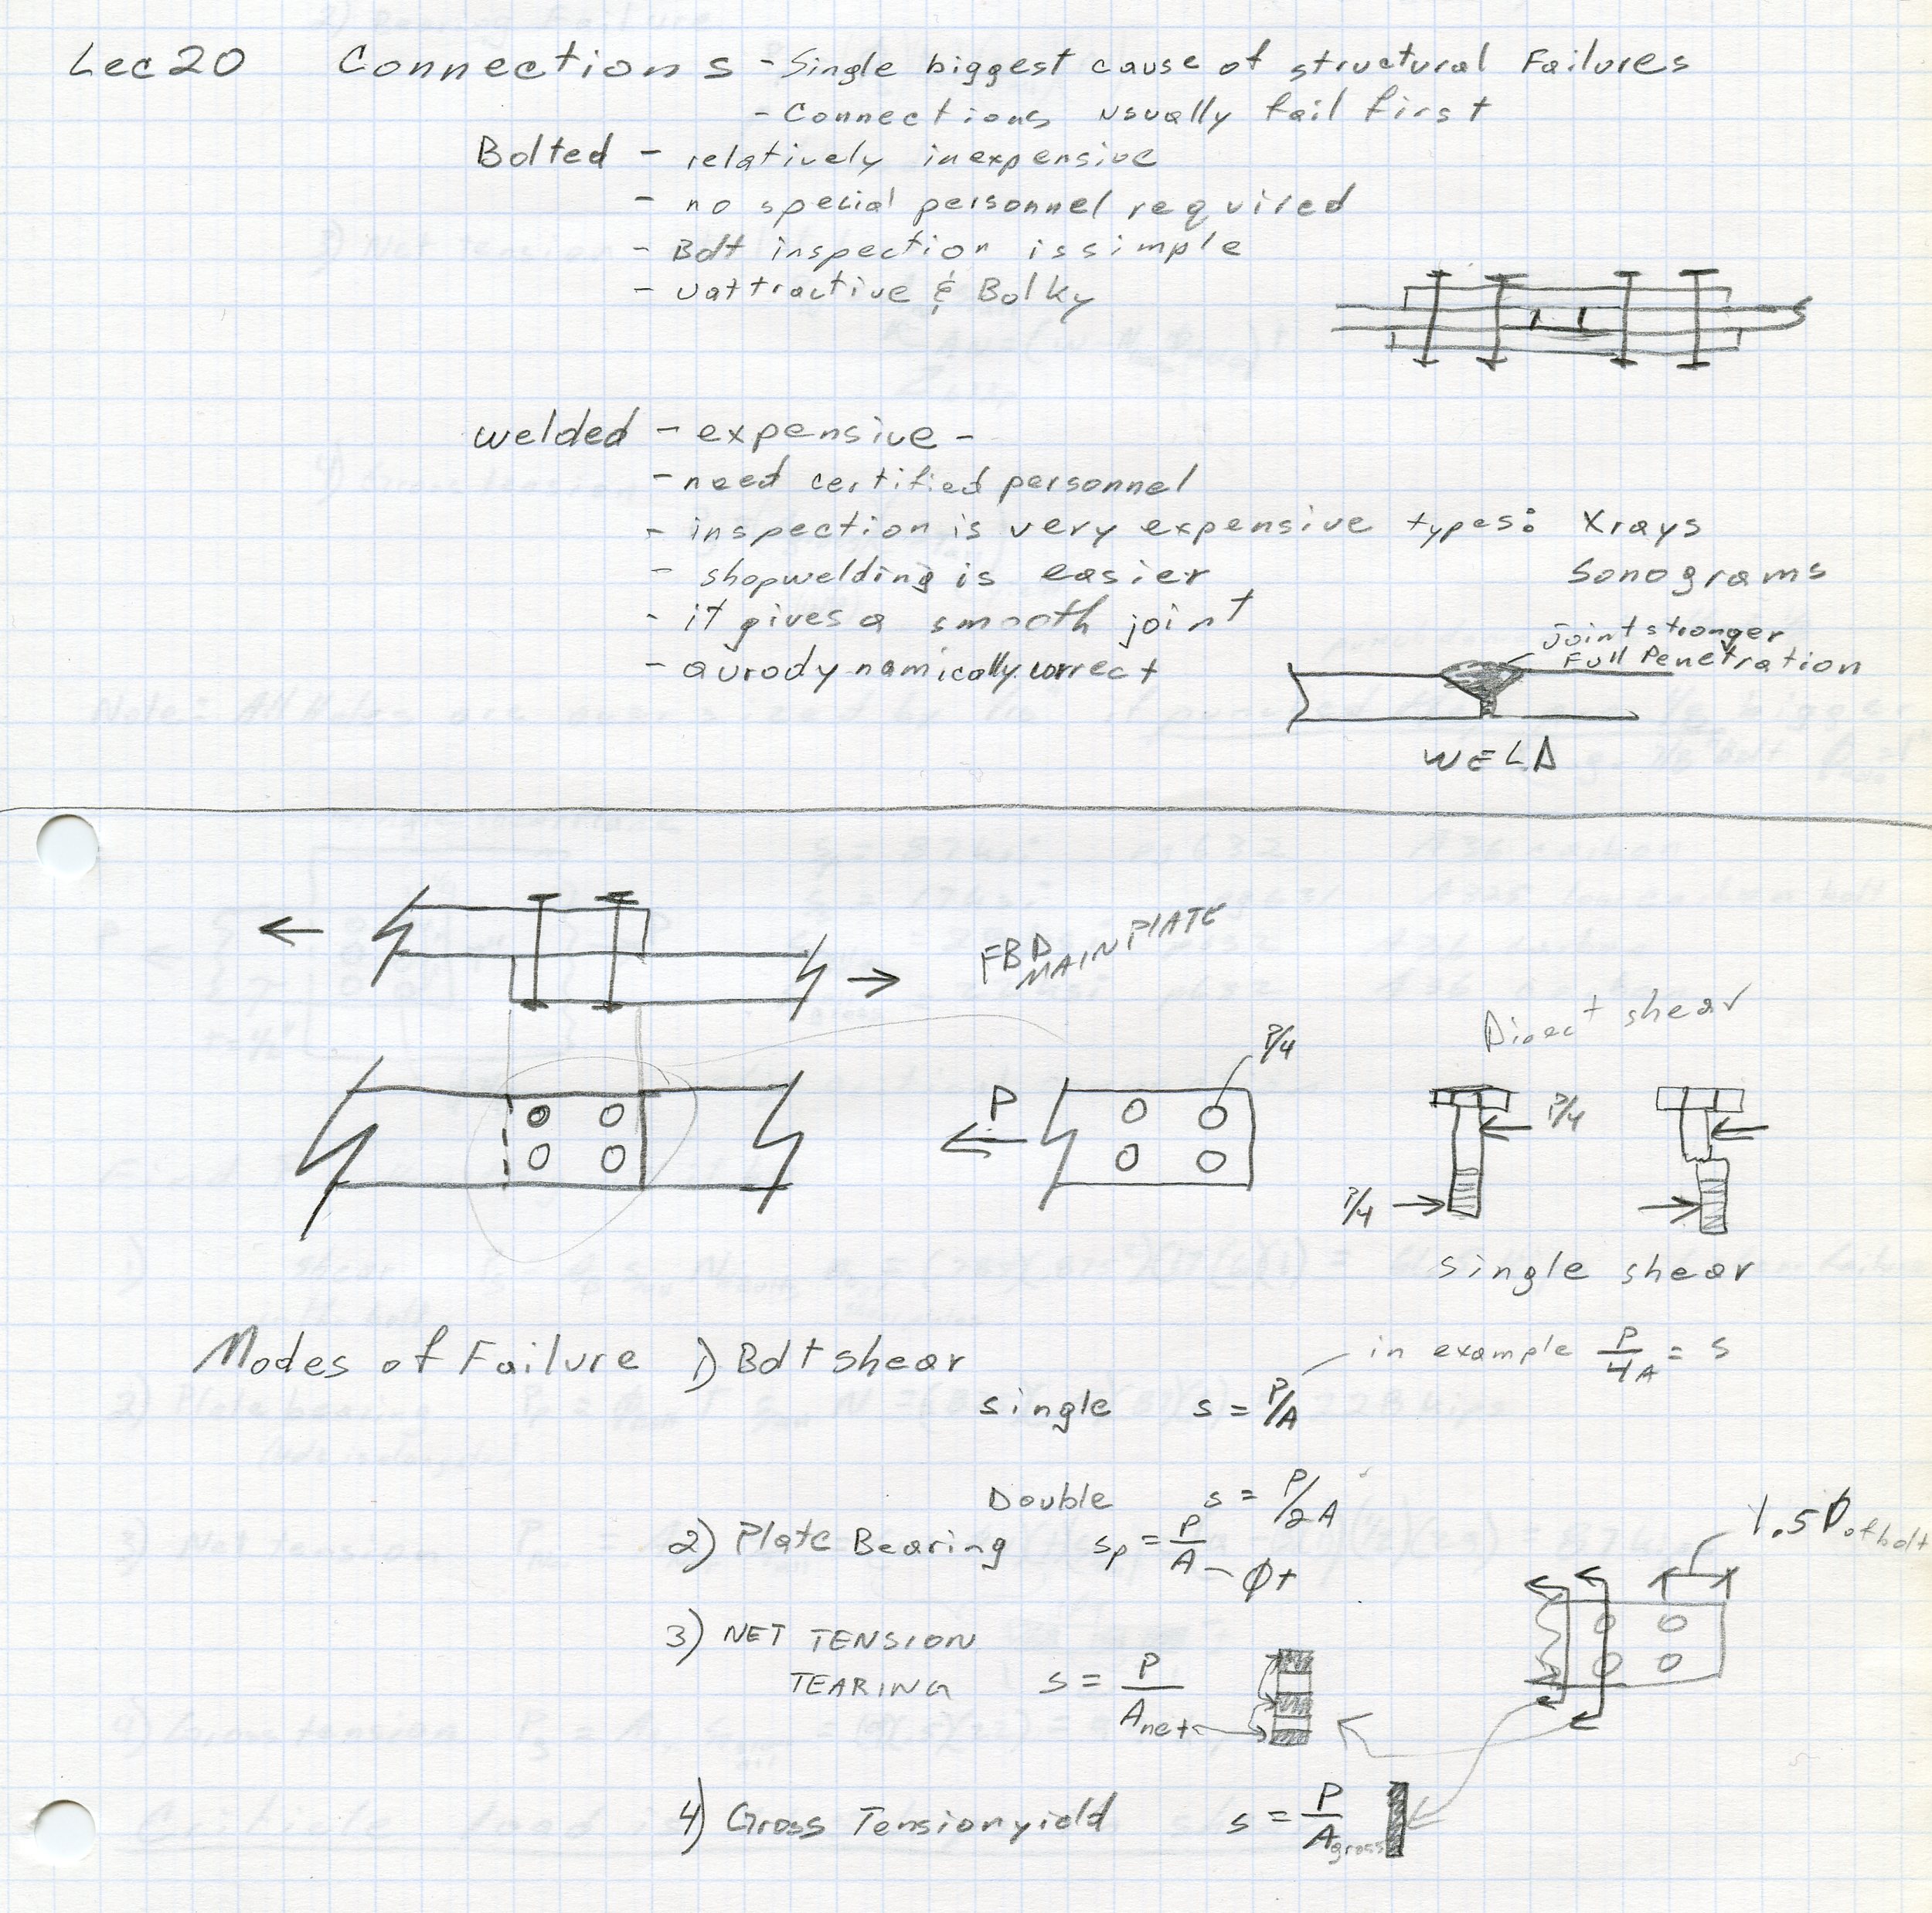 Lec 20 Connections - Single biggest cause of structural Failures
- Connections usually fail first
Bolted - relatively inexpensive
- no special personnel required
- Bolt inspection is simple
- uattractive & Bolky
welded - expensive -
- need certified personnel
- inspection is very expensive types: Xrays
- shopwelding is easier Sonograms
- it gives a smooth joint
Joint stronger
Full Penetration
- aurodynamically correct
WELD
FBD MAIN PLATE
Direct shear
P/4
P
P/4
P/4
single shear
Modes of Failure 1) Bolt shear
in example P/4A = s
single s = P/A
Double s = P/2A
1.5 D of bolt
2) Plate Bearing sp = P/A - Øt
3) NET TENSION
TEARING s = P/Anet
4) Gross Tension yield s = P/Agross